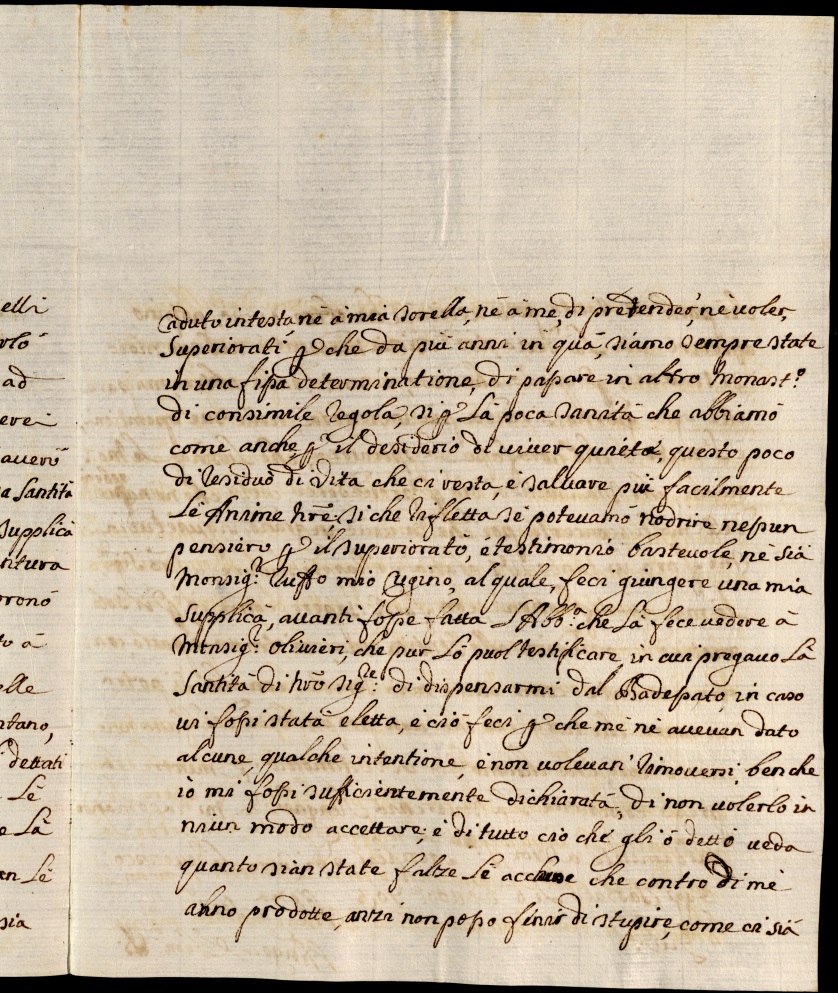 elli
rlò
ad
erei
averò
a Santità
Supplica
ntura
orono
to à
elle
ntano,
dettati
Lè
e Là
en Lè
sia
caduto in testa, nè à mia sorella, nè à mè, di pretender, nè voler,
Superiorati p che da più anni in quà, siamo sempre state
in una fissa determinatione, di passare in altro Monast.º
di consimile regola, sì p Là poca sanità che abbiamo
come anche p il desiderio di viver quiete, questo poco
di residuo di Vita che ci resta, è salvare più facilmente
Lè Anime nrè, sì che rifletta sè potevamo nodrire nessun
pensiero p il superiorato, è testimonio bastevole, nè sia
Monsig.r Ruffo mio Cugino, al quale, feci giungere una mia
Supplica, avanti fosse fatta L'Abb.a che Là fece vedere à
Monsig.r Olivieri, che pur Lò puol testificare in cui pregavo Là
Santità di Nrò Sig.re di dispensarmi dal Badessato, in caso
vi fossi stata eletta, è ciò feci p che mè nè avevan dato
alcune, qualche intentione, è non volevan rimoversi, benche
io mi fossi sufficientemente dichiarata, di non volerlo in
niun modo accettare, è di tutto ciò che gli ò detto veda
quanto sian state faltze Lè acchuse che contro di mè
anno prodotte, antzi non posso finir di stupire, come ci sià